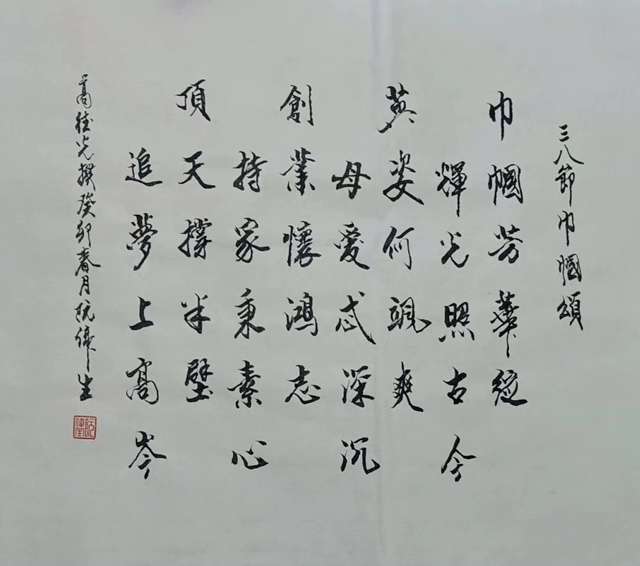 三八節巾幗頌
巾幗芳華綻
輝光照古今
英姿何颯爽
母愛忒深沉
創業懷鴻志
持家秉素心
頂天撐半壁
追夢上髙岑
光撰癸卯春月偉生